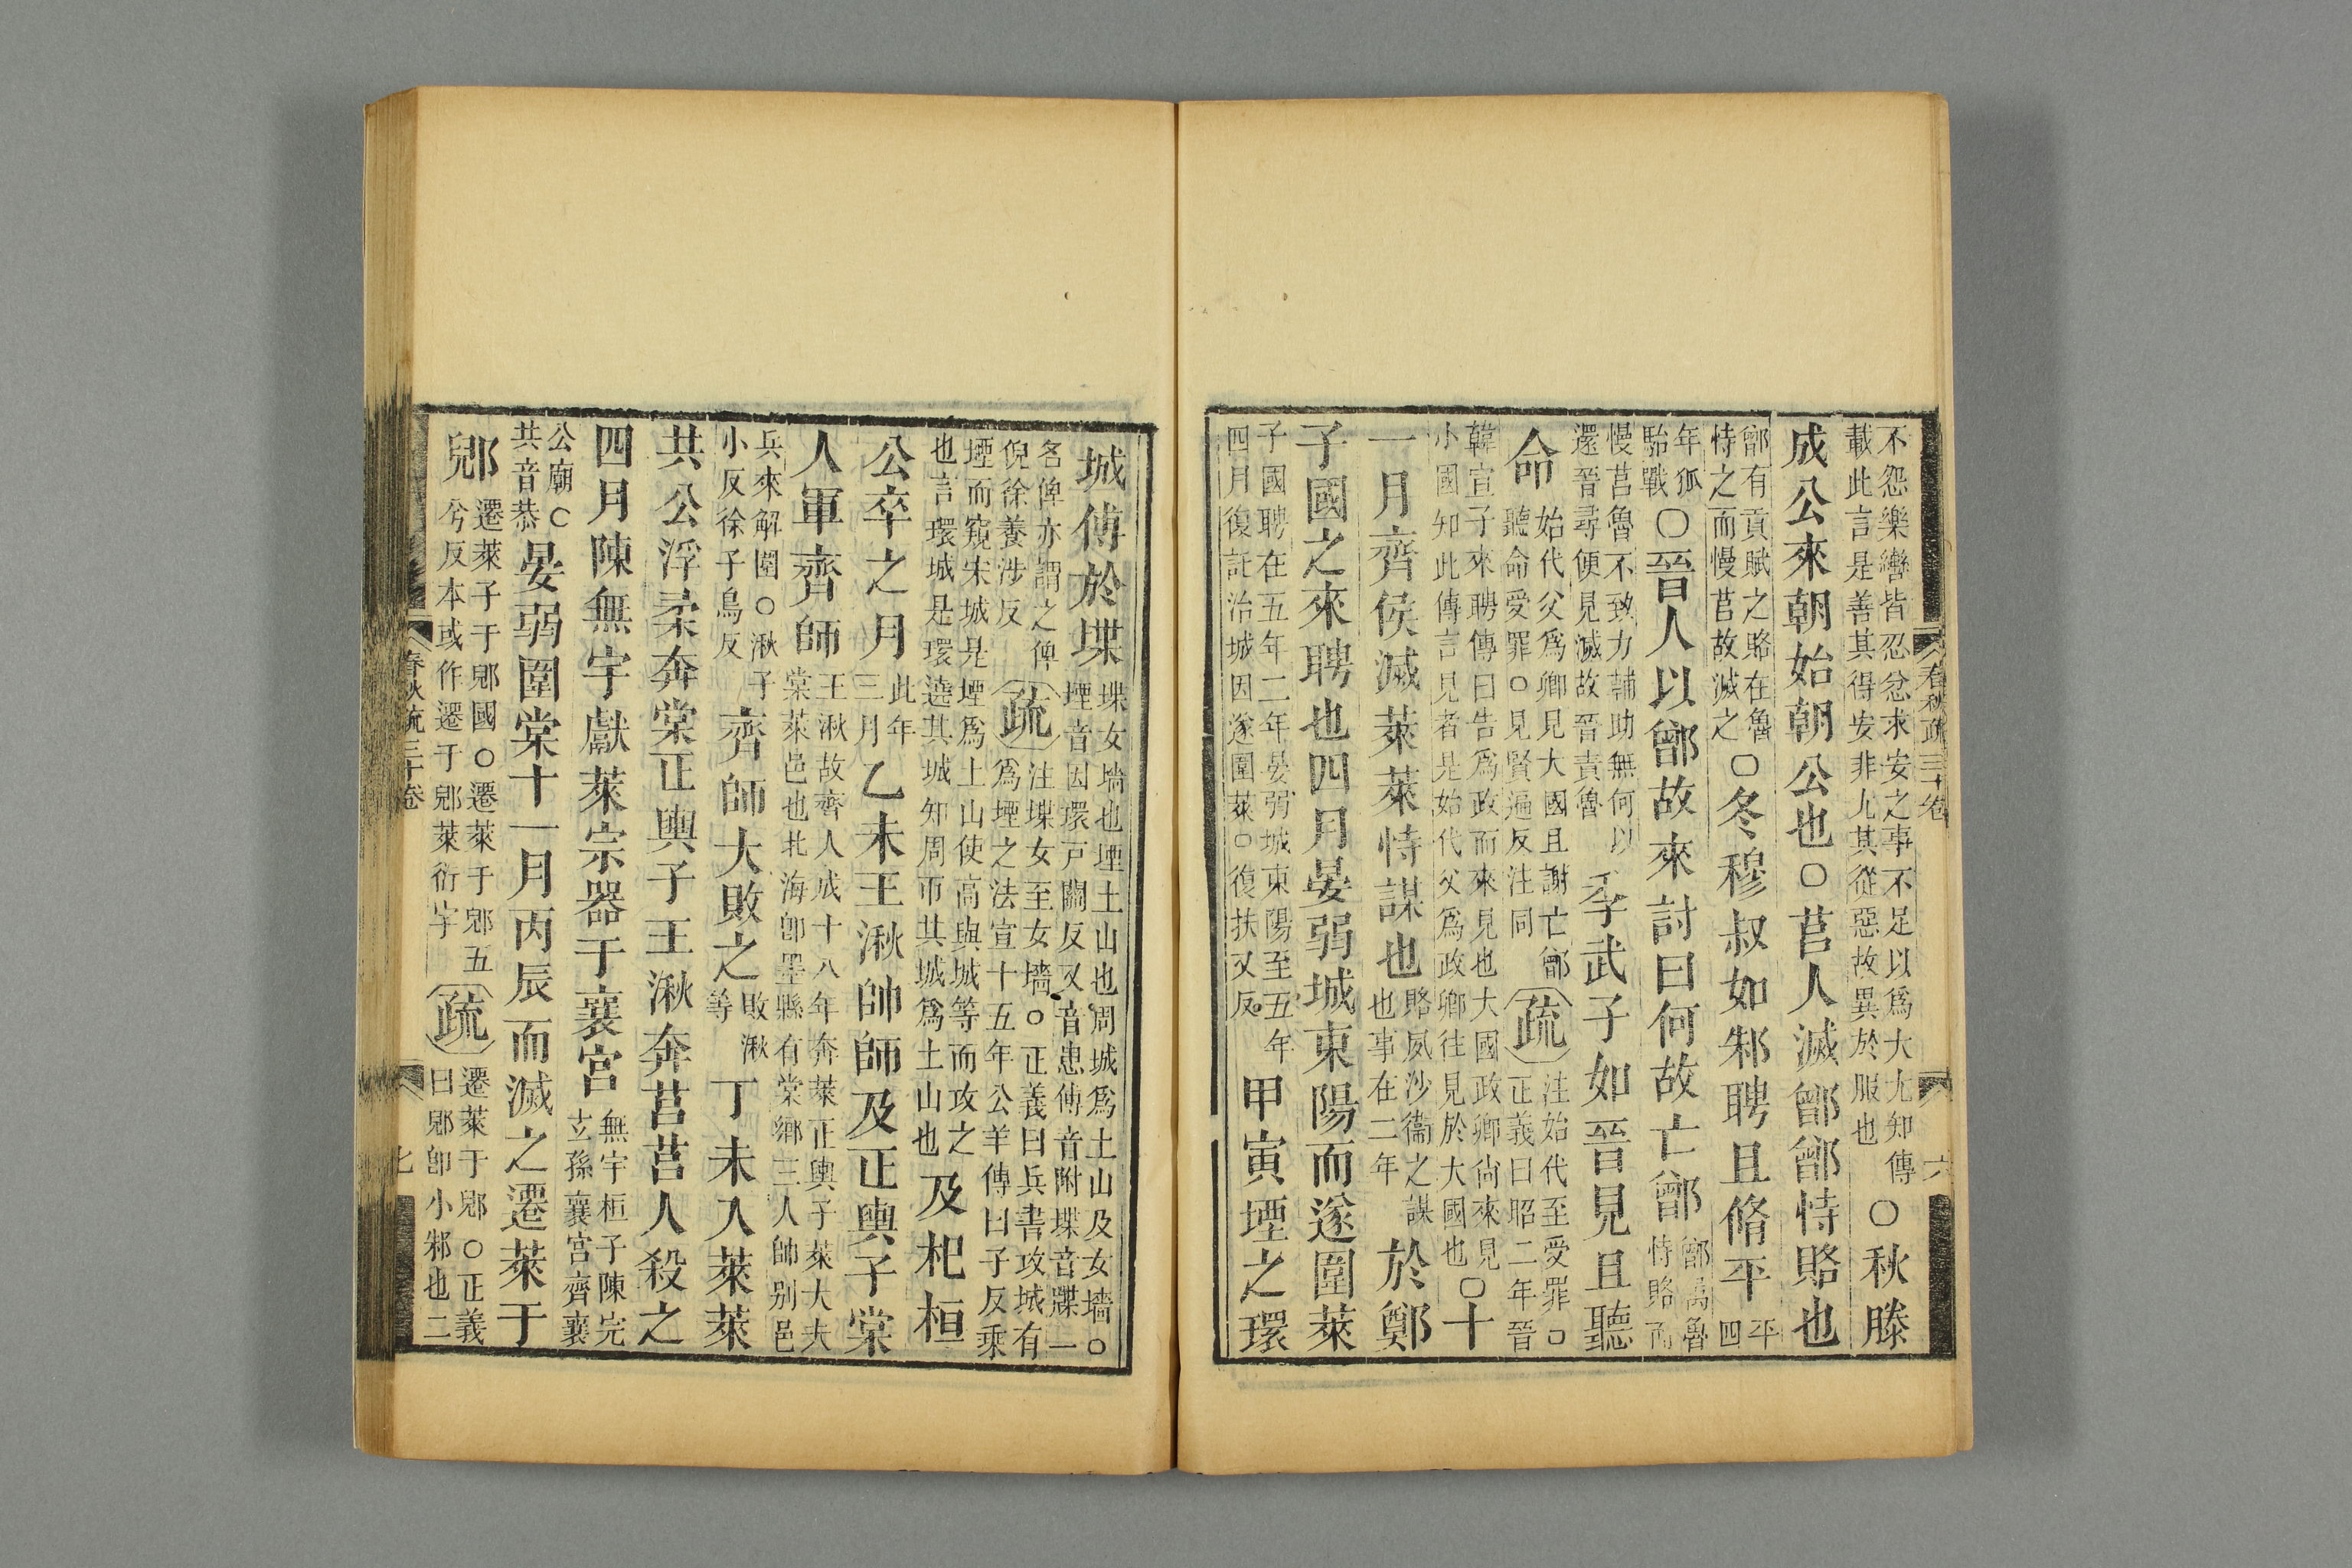 不怨樂轡皆忍忿求安之事不足以爲大尤知傳
載此言是善其得安非尤其從惡故異於服也
○秋滕
成公來朝始朝公也○莒人滅鄫鄫恃賂也
鄫有貢賦之賂在魯
恃之而慢莒故滅之
○冬穆叔如邾聘且脩平
平
四
年狐
駘戰
○晉人以鄫故來討曰何故亡鄫
鄫屬魯
恃賂而
慢莒魯不致力輔助無何以
還晉尋便見滅故晉責魯
季武子如晉見且聽
命
始代父爲卿見大國且謝亡鄫
聽命受罪○見賢遍反注同
疏
注始代至受罪○
正義曰昭二年晉
韓宣子來聘傳曰告爲政而來見也大國政卿尚來見
小國知此傳言見者是始代父爲政卿往見於大國也
○十
一月齊侯滅萊萊恃謀也
賂夙沙衞之謀
也事在二年
於鄭
子國之來聘也四月晏弱城東陽而遂圍萊
子國聘在五年二年晏弱城東陽至五年
四月復託治城因遂圍萊○復扶又反
甲寅堙之環
春秋疏三十卷
六
城傅於堞
堞女墻也堙土山也周城爲土山及女墻○
堙音因環戸關反又音患傅音附堞音牒一
名俾亦謂之俾
倪徐養涉反
疏
注堞女至女墻○正義曰兵書攻城有
爲堙之法宣十五年公羊傳曰子反乘
堙而窺宋城是堙爲土山使高與城等而攻之
也言環城是環遶其城知周帀其城爲土山也
及杞桓
公卒之月
此年
三月
乙未王湫帥師及正輿子棠
人軍齊師
王湫故齊人成十八年奔萊正輿子萊大夫
棠萊邑也北海卽墨縣有棠鄉三人帥别邑
兵來解圍○湫子
小反徐子鳥反
齊師大敗之
敗湫
等
丁未入萊萊
共公浮柔奔棠正輿子王湫奔莒莒人殺之
四月陳無宇獻萊宗器于襄宮
無宇桓子陳完
玄孫襄宮齊襄
公廟○
共音恭
晏弱圍棠十一月丙辰而滅之遷萊于
郳
遷萊子于郳國○遷萊于郳五
兮反本或作遷于郳萊衍字
疏
遷萊于郳○正義
曰郳卽小邾也二
春秋疏三十卷
七